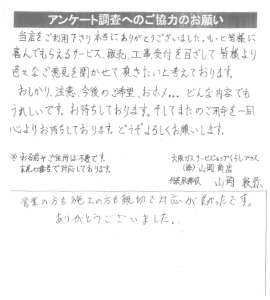 アンケート調査へのご協力のお願い
当店をご利用下さり本当にありがとうございました。もっと皆様に
喜んでもらえるサービス、販売、工事受付を目ざして皆様より
色々なご意見を聞かせて頂きたいと考えております。
おしかり、注意、今後のご希望、おホメ... どんな内容でも
うれしいです。お待ちしております。そしてまたのご用命を一同
心よりお待ちしております。どうぞよろしくお願いします。
※お名前やご住所は不要です。
大阪ガスサービスショップくらしプラス
(株)山岡商店
代表取締役 山岡
営業の方も施工の方も親切で対応が良かったです。
ありがとうございました。